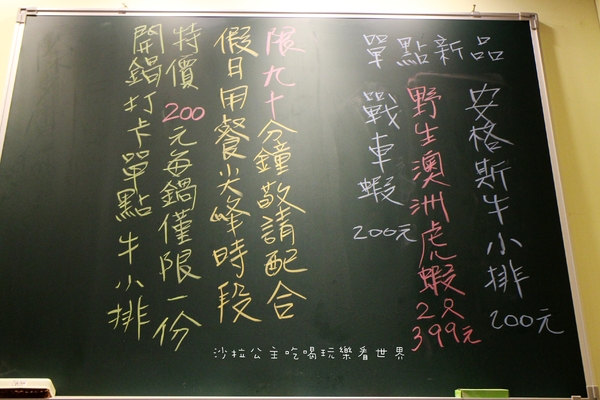 單點新品
安格斯牛小排
200元
野生澳洲虎蝦
2只
399元
戰車蝦
200元
限九十分鐘敬請配合
假日用餐尖峰時段
特價200元每鍋僅限一份
開鍋打卡單點牛小排
沙拉公主吃喝玩樂看世界